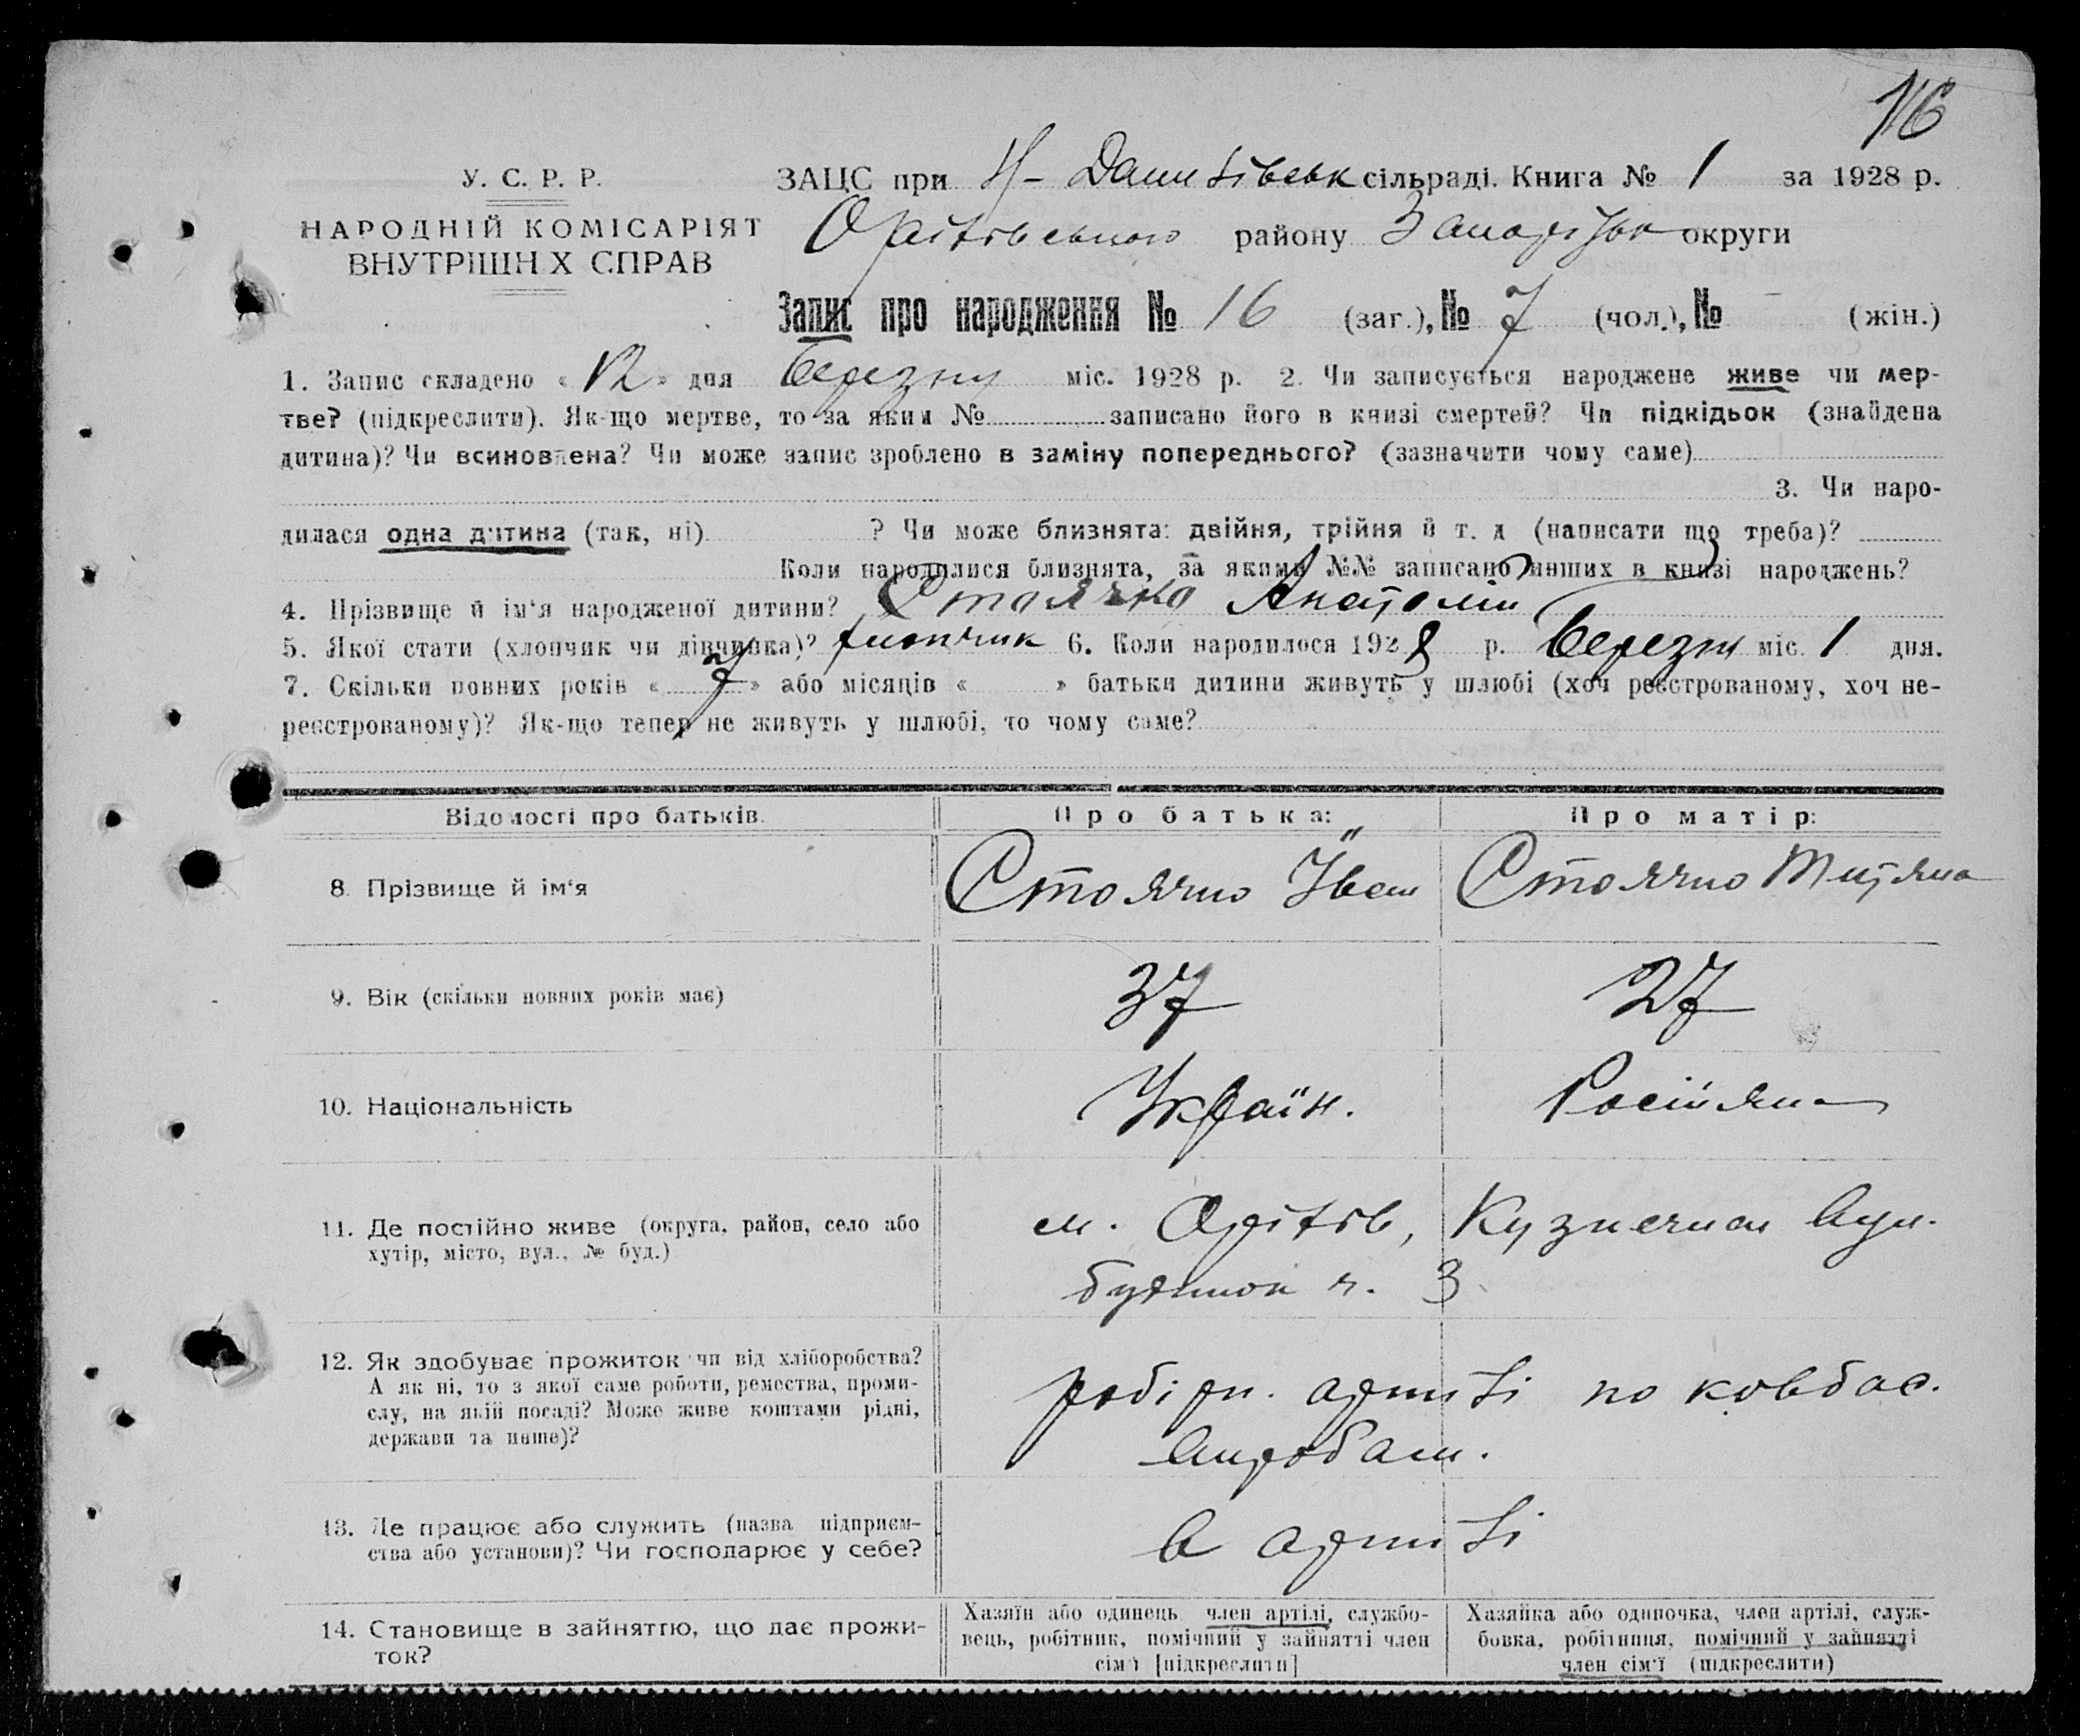 16
У. С. Р. Р.
НАРОДНІЙ КОМІСАРІЯТ
ВНУТРІШН Х СПРАВ
ЗАЦС при Н- Данилівськ сільраді. Книга № 1 за 1928 р.
Оріхівського району Запоріжк округи
Запис про народження № 16 (заг.), № 7 (чол.), № - (жін.)
1. Запис складено « 12 » дня березня міс. 1928 р. 2. Чи записується народжене живе чи мер-
тве? (підкреслити). Як-що мертве, то за яким № записано його в книзі смертей? Чи підкідьок (знайдена
дитина)? Чи всиновлена? Чи може запис зроблено в заміну попереднього? (зазначити чому саме)
3. Чи наро-
дилася одна дитина (так, ні) ? Чи може близнята: двійня, трійня й т. д (написати що треба)?
Коли народилися близнята, за якими №№ записано инших в книзі народжень?
4. Прізвище й ім'я народженої дитини? Стоячко Анатолій
5. Якої стати (хлопчик чи дівчинка)? хлопчик 6. Коли народилося 1928 р. березня міс. 1 дня.
7. Скільки повних років « 7 » або місяців « » батьки дитини живуть у шлюбі (хоч реєстрованому, хоч не-
реєстрованому)? Як-що тепер не живуть у шлюбі, то чому саме?
Відомості про батьків.
Про батька:
Про матір:
8. Прізвище й ім'я
Стоячко Іван
Стоячко Тетяна
9. Вік (скільки повних років має)
37
27
10. Національність
Україн.
Росіяна
11. Де постійно живе (округа, район, село або
хутір, місто, вул., № буд.)
м. Оріхів, Кузнечная вул.
будинок ч. 3
12. Як здобуває прожиток чи від хліборобства?
А як ні, то з якої саме роботи, ремества, проми-
слу, на якій посаді? Може живе коштами рідні,
держави та инше)?
робітн. артілі по ковбас.
виробам.
13. Де працює або служить (назва підприєм-
ства або установи)? Чи господарює у себе?
в артілі
14. Становище в зайняттю, що дає прожи-
ток?
Хазяїн або одинець, член артілі, службо-
вець, робітник, помічний у зайнятті член
сім'ї [підкреслити]
Хазяйка або одиночка, член артілі, служ-
бовка, робітниця, помічний у зайнятті
член сім'ї (підкреслити)